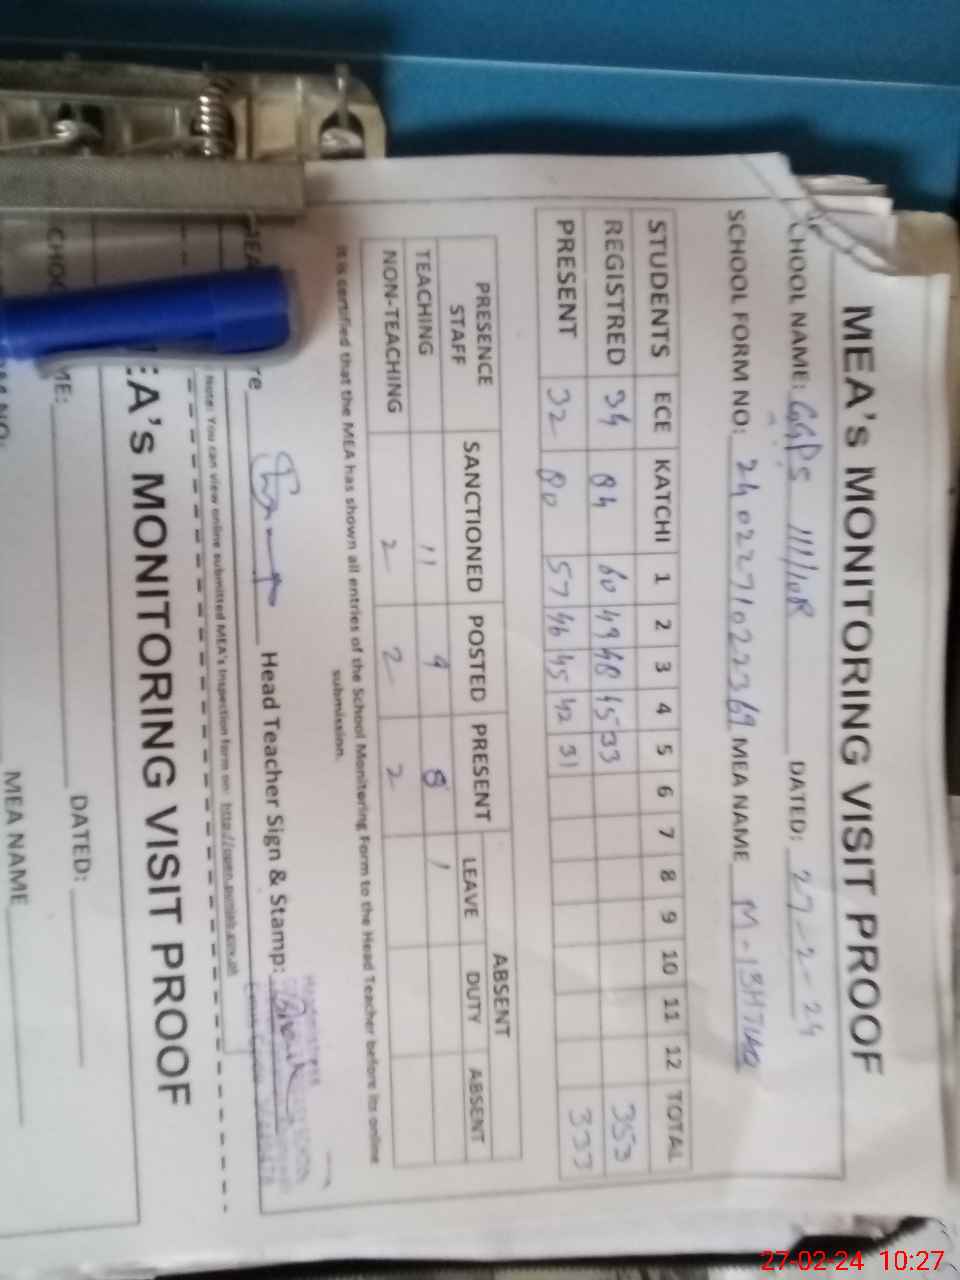 MEA's MONITORING VISIT PROOF
CHOOL NAME: GGPS 111/10R DATED: 27-2-24
SCHOOL FORM NO: MEA NAME M.
STUDENTS ECE KATCHI 1 2 3 4 5 6 7 8 9 10 11 12 TOTAL
REGISTRED 34 84 60 49 48 45 33 353
PRESENT 32 80 57 46 45 42 31 333
PRESENCE STAFF SANCTIONED POSTED PRESENT ABSENT
LEAVE DUTY ABSENT
TEACHING 11 9 8 1
NON-TEACHING 2 2 2
It is certified that the MEA has shown all entries of the School Monitering Form to the Head Teacher before its online
submission.
MEA re Head Teacher Sign & Stamp:
Note: You can view online submitted MEA's Inspection form on: http://open.punjab.gov.pk
EA's MONITORING VISIT PROOF
CHOO ME: DATED:
RM NO: MEA NAME
27-02-24 10:27